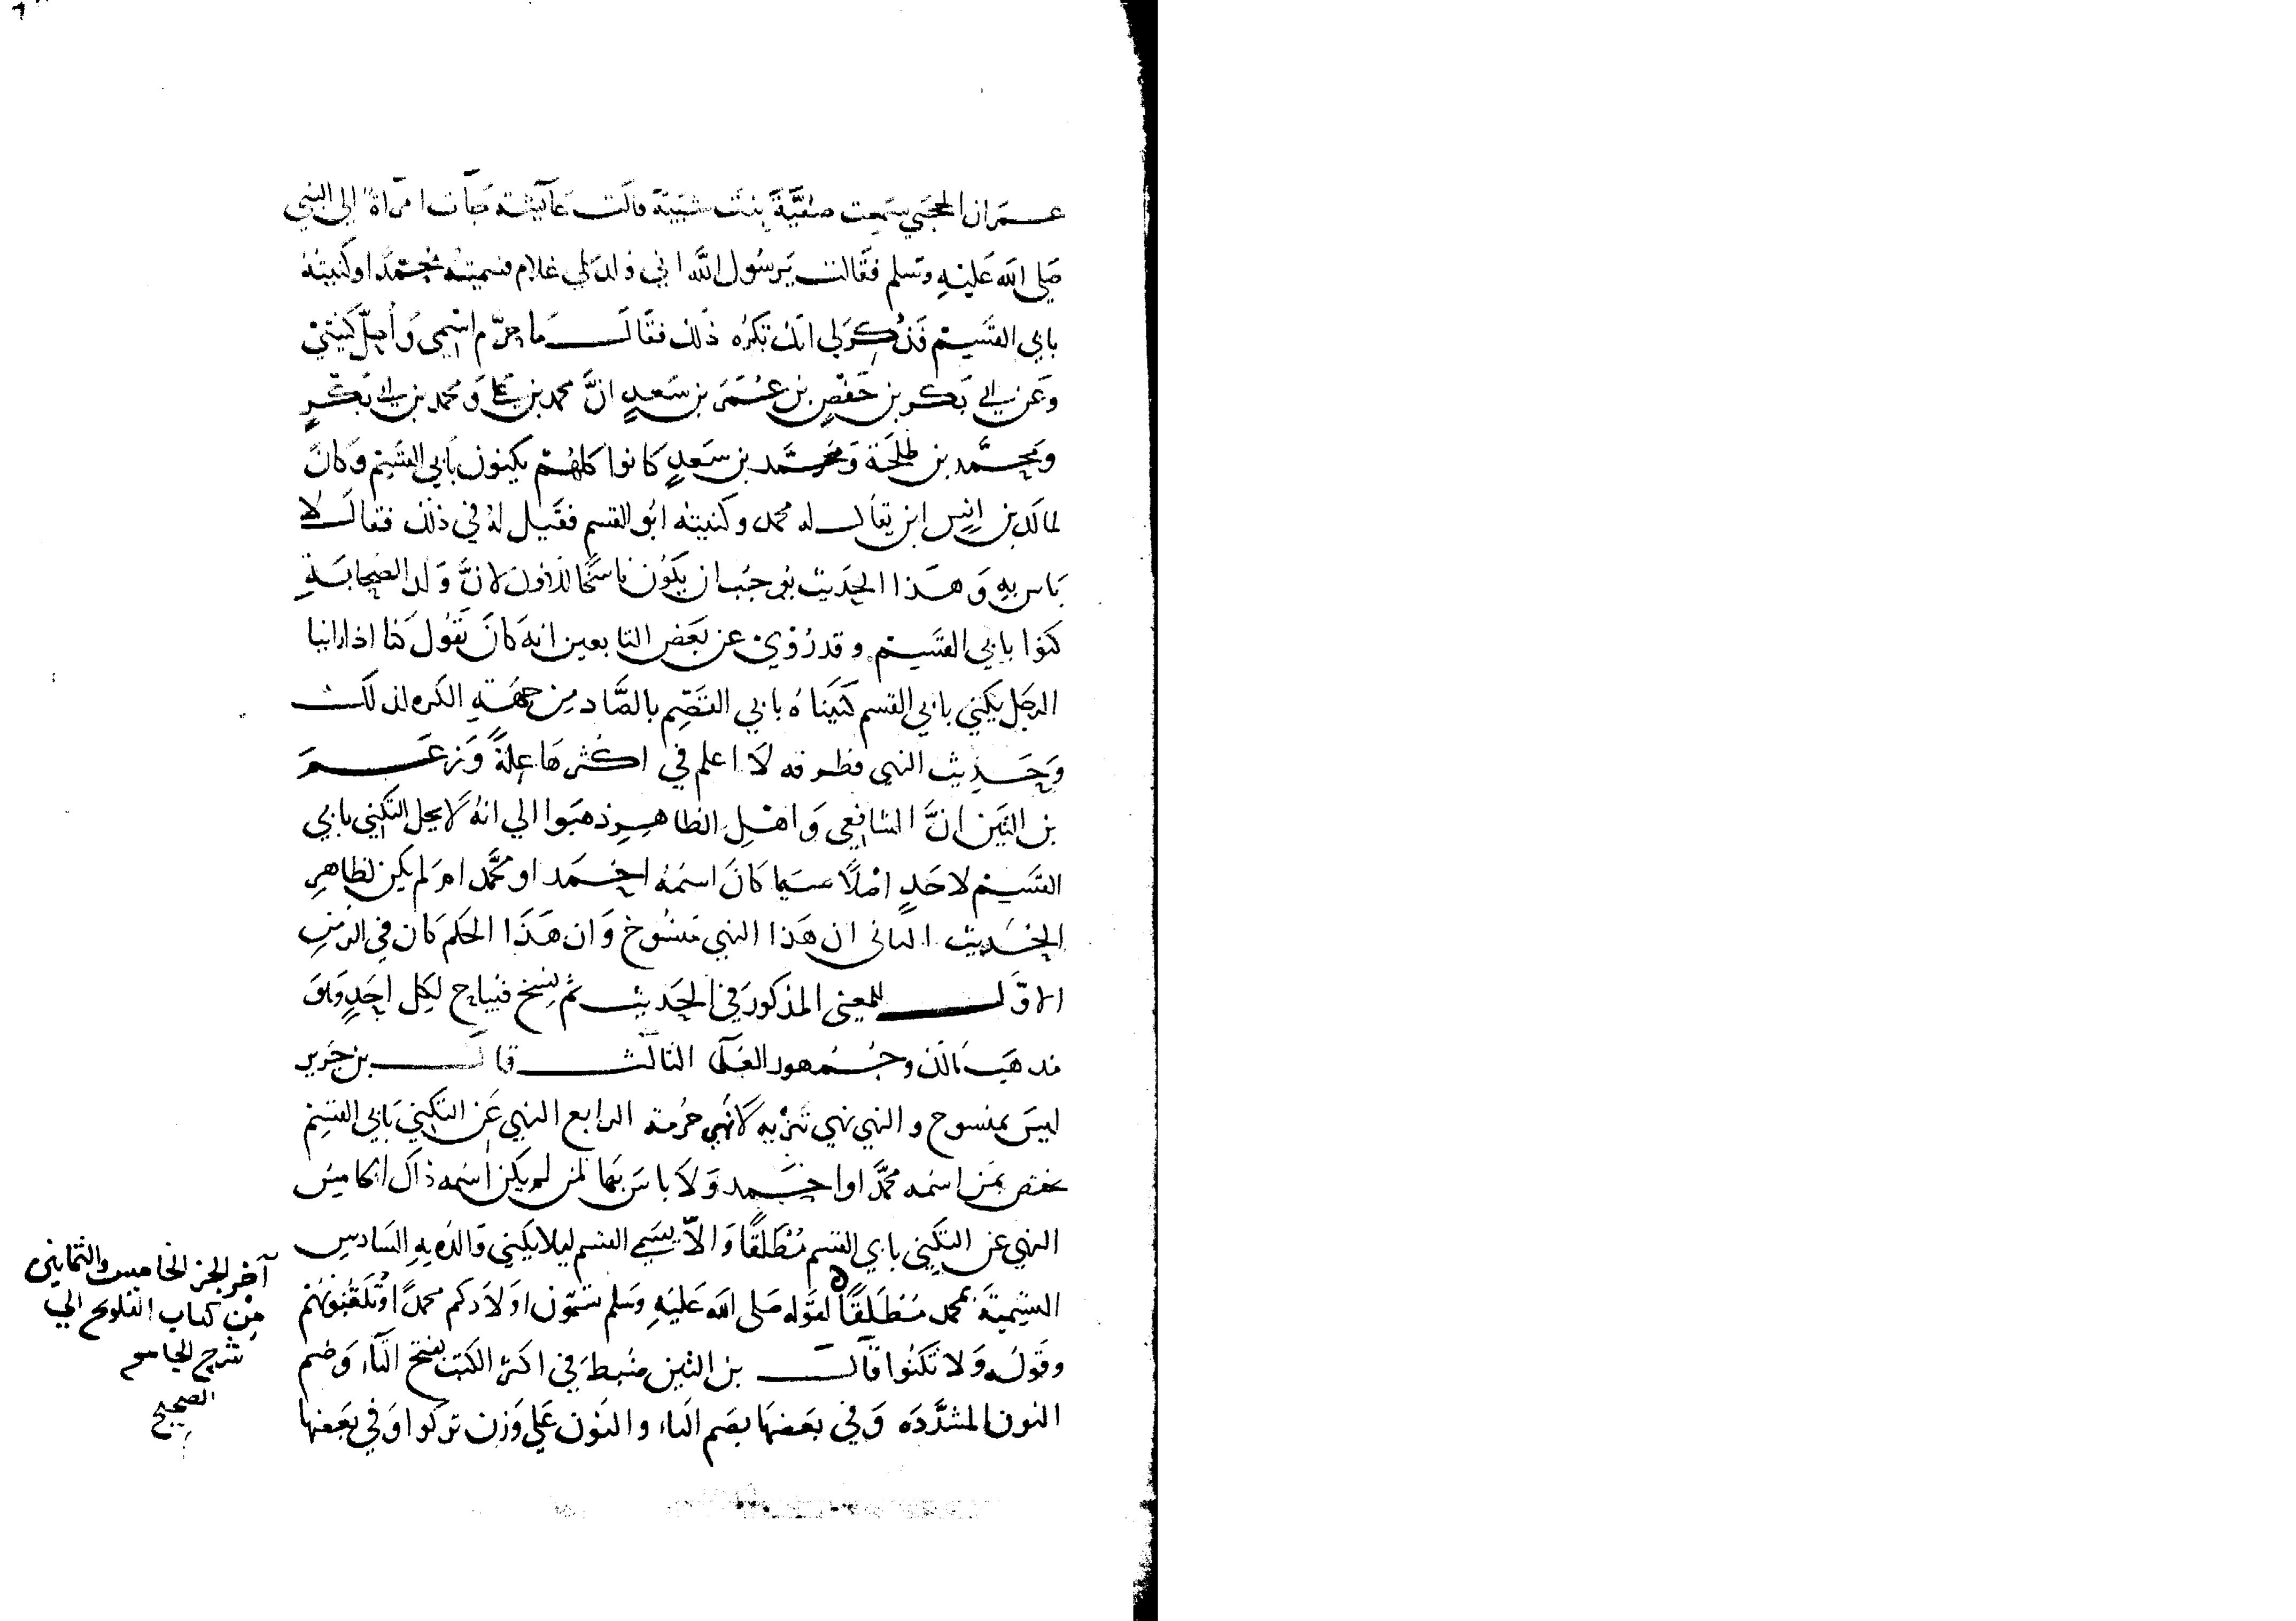 عمران الحجبي سمعت صفيّة بنت شيبة قالت عآئيشة جآت امرأة إلى النبي
صلى الله عليه وسلم فقالت يرسول الله اني ولد لي غلام فسميته محمدا وكنيته
بابي القسم فذكر لي انك تكره ذلك فقال ما حرّم اسمي وأحلّ كنيتي
وعن ابي بكر بن حفص بن عمر بن سعد انّ محمد بن علي ومحمد بن ابي بكر
ومحمّد بن طلحة ومحمّد بن سعد كانوا كلهم يكنون بابي القسم وكان
لمالك بن انس ابن يقال له محمد وكنيته ابو القسم فقيل له في ذلك فقال لا
باس به وهذا الحديث يوجب ان يكون ناسخا للاول لانّ ولد الصحابة
كنوا بابي القسم وقد رُوي عن بعض التابعين انه كان يقول كنا اذا راينا
الرجل يكني بابي القسم كنيناه بابي القصم بالصّاد من جهة الكره لذلك
وحديث النهي فطرقه لا اعلم في اكثرها علة وزعم
بن التين انّ الشافعي واهل الظاهر ذهبوا الي انه لا يحل التكني بابي
القسم لاحد اصلا سيما كان اسمه احمد او محمّد ام لم يكن لظاهر
الحديث الثاني ان هذا النهي منسوخ وان هذا الحكم كان في الزمن
الاوّل للمعنى المذكور في الحديث ثم نسخ فيباح لكل احد وهو
مذهب مالك وجمهور العلما الثالث قال بن جرير
ليس بمنسوح والنهي نهي تنزيه لا نهي حرمة الرابع النهي عن التكني بابي القسم
مختص بمن اسمه محمّد او احمد ولا باس بها لمن لم يكن اسمه ذاك الخامس
النهي عن التكني بابي القسم مُطلقًا والاّ يسمي القسم ليلا يكني والده به السادس
التسمية بمحمد مُطلقًا لقوله صلى الله عليه وسلم تسمون اولادكم محمدًا وتلعنونهم
وقوله ولا تكنوا قال بن التين ضبط في اكثر الكتب بفتح التآء وضم
النون المشدّده وفي بعضها بضم التاء والنون علي وزن تركوا وفي بعضها
آخر الجز الخامس والثمانين
من كتاب التلويح الي
شرح الجامع
الصحيح